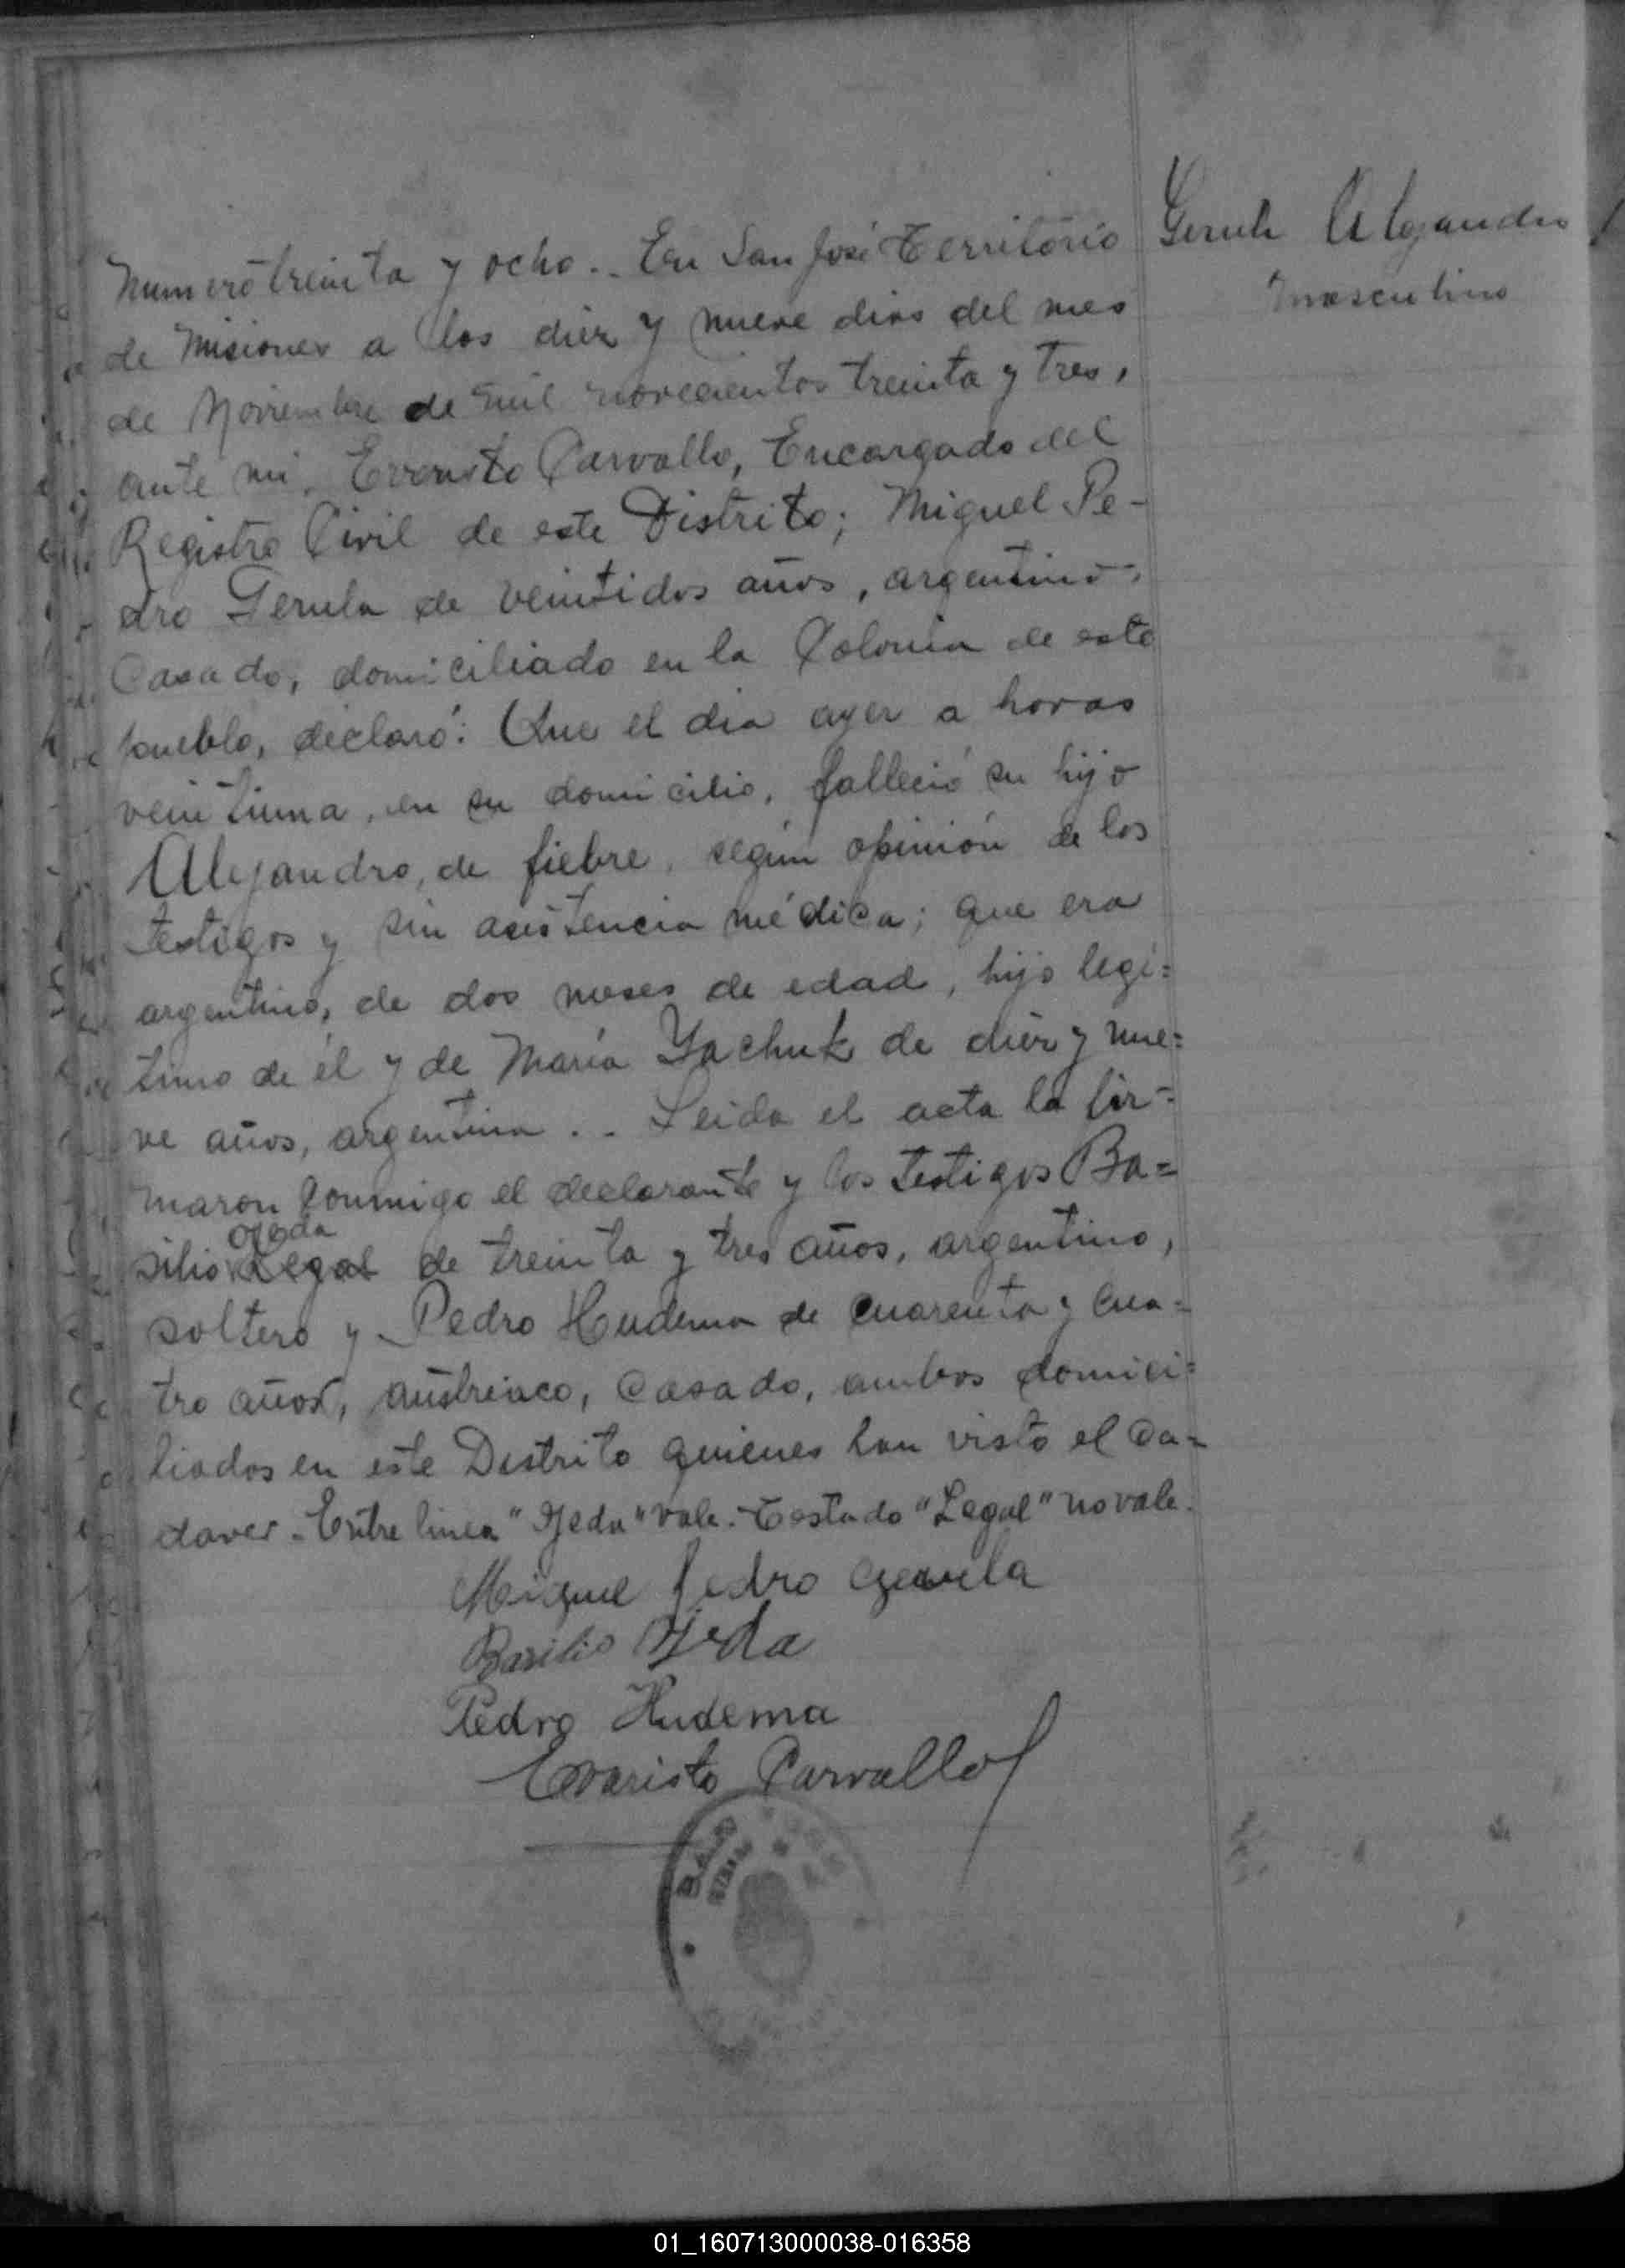 Gerula Alejandro
masculino
Numero treinta y ocho.. En San José Territorio
de Misiones a los diez y nueve dias del mes
de Noviembre de mil novecientos treinta y tres,
ante mi, Evaristo Carvallo, Encargado del
Registro Civil de este Distrito; Miguel Pe-
dro Gerula de veintidos años, argentino,
Casado, domiciliado en la Colonia de este
pueblo, declaró: Que el dia ayer a horas
veintiuna, en su domicilio, falleció su hijo
Alejandro, de fiebre, según opinión de los
testigos y sin asistencia médica; que era
argentino, de dos meses de edad, hijo legi=
timo de él y de María Yachuk de diez y nue=
ve años, argentina.. Leida el acta la fir=
maron conmigo el declarante y los testigos Ba=
Ojeda
silio Legal de treinta y tres años, argentino,
soltero y Pedro Hudema de cuarenta y cua=
tro años, austriaco, Casado, ambos domici=
liados en este Distrito quienes han visto el ca=
daver. Entre linea "Ojeda" vale. Testado "Legal" no vale.
Miguel Pedro Gerula
Basilio Ojeda
Pedro Hudema
Evaristo Carvallo
01_160713000038-016358